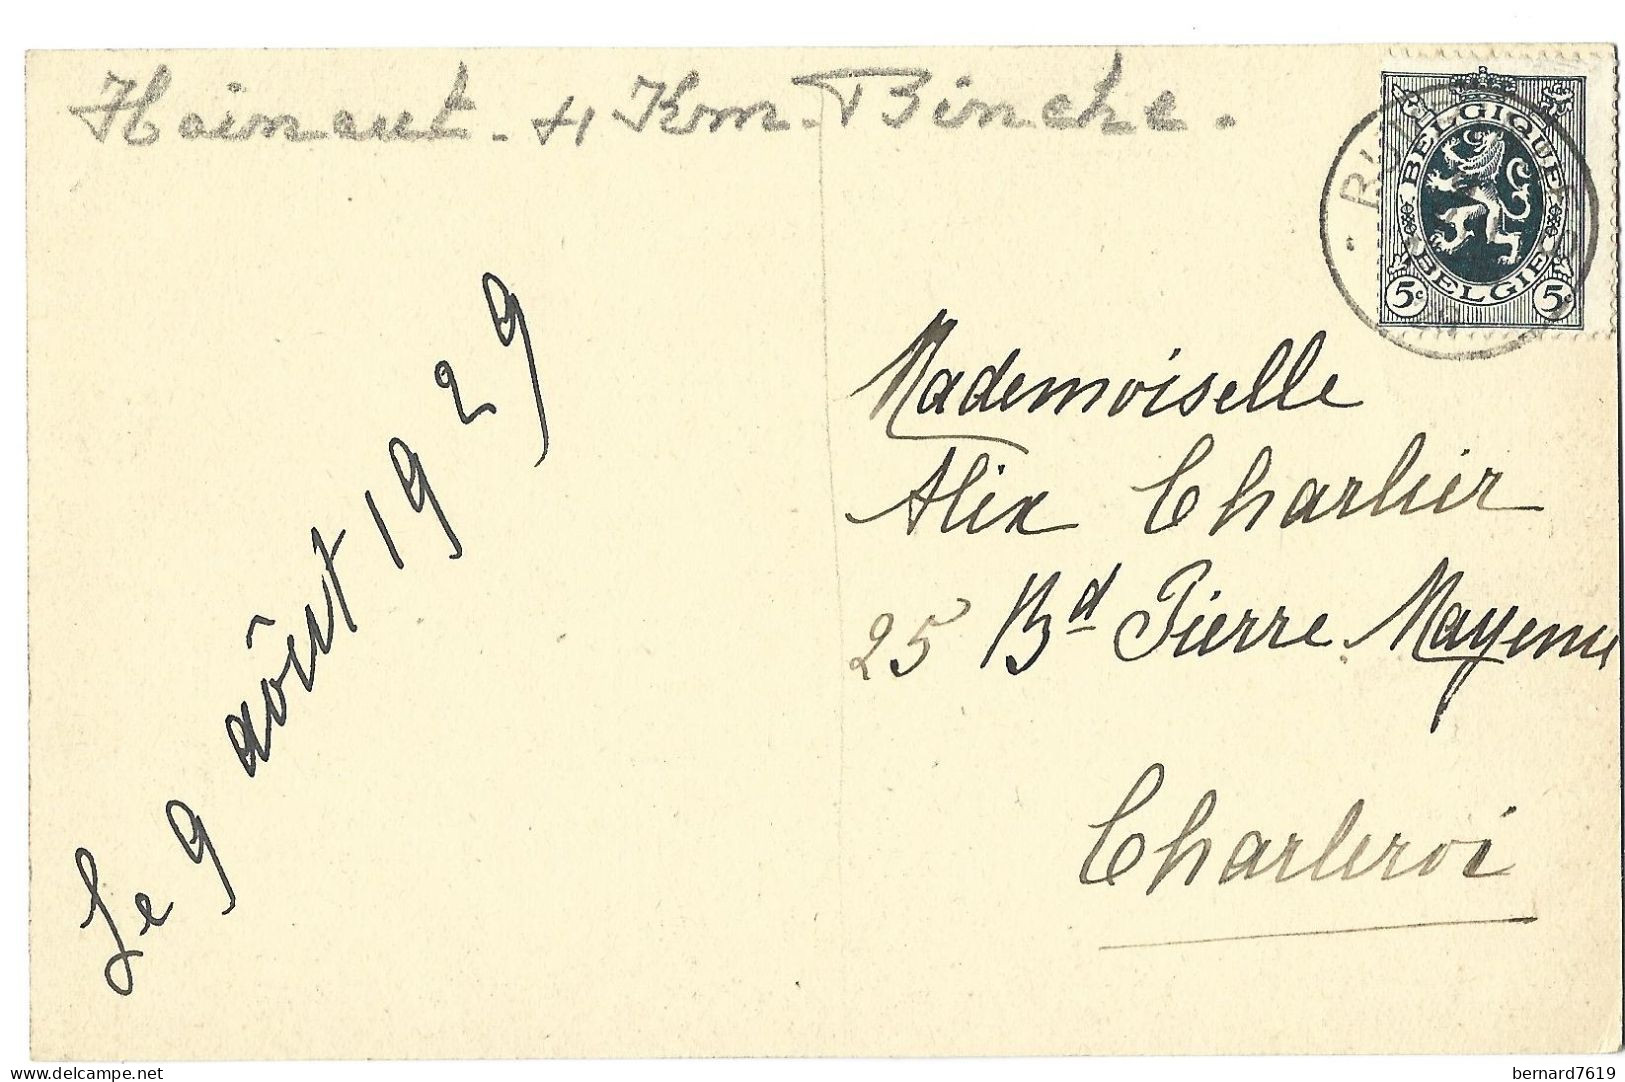 Hainaut - 4 Km. Binche.
BELGIQUE
BELGIE
5c 5c
Le 9 aôut 1929
Mademoiselle
Alix Charlier
25 Bd Pierre Mayence
Charleroi
www.delcampe.net
bernard7619